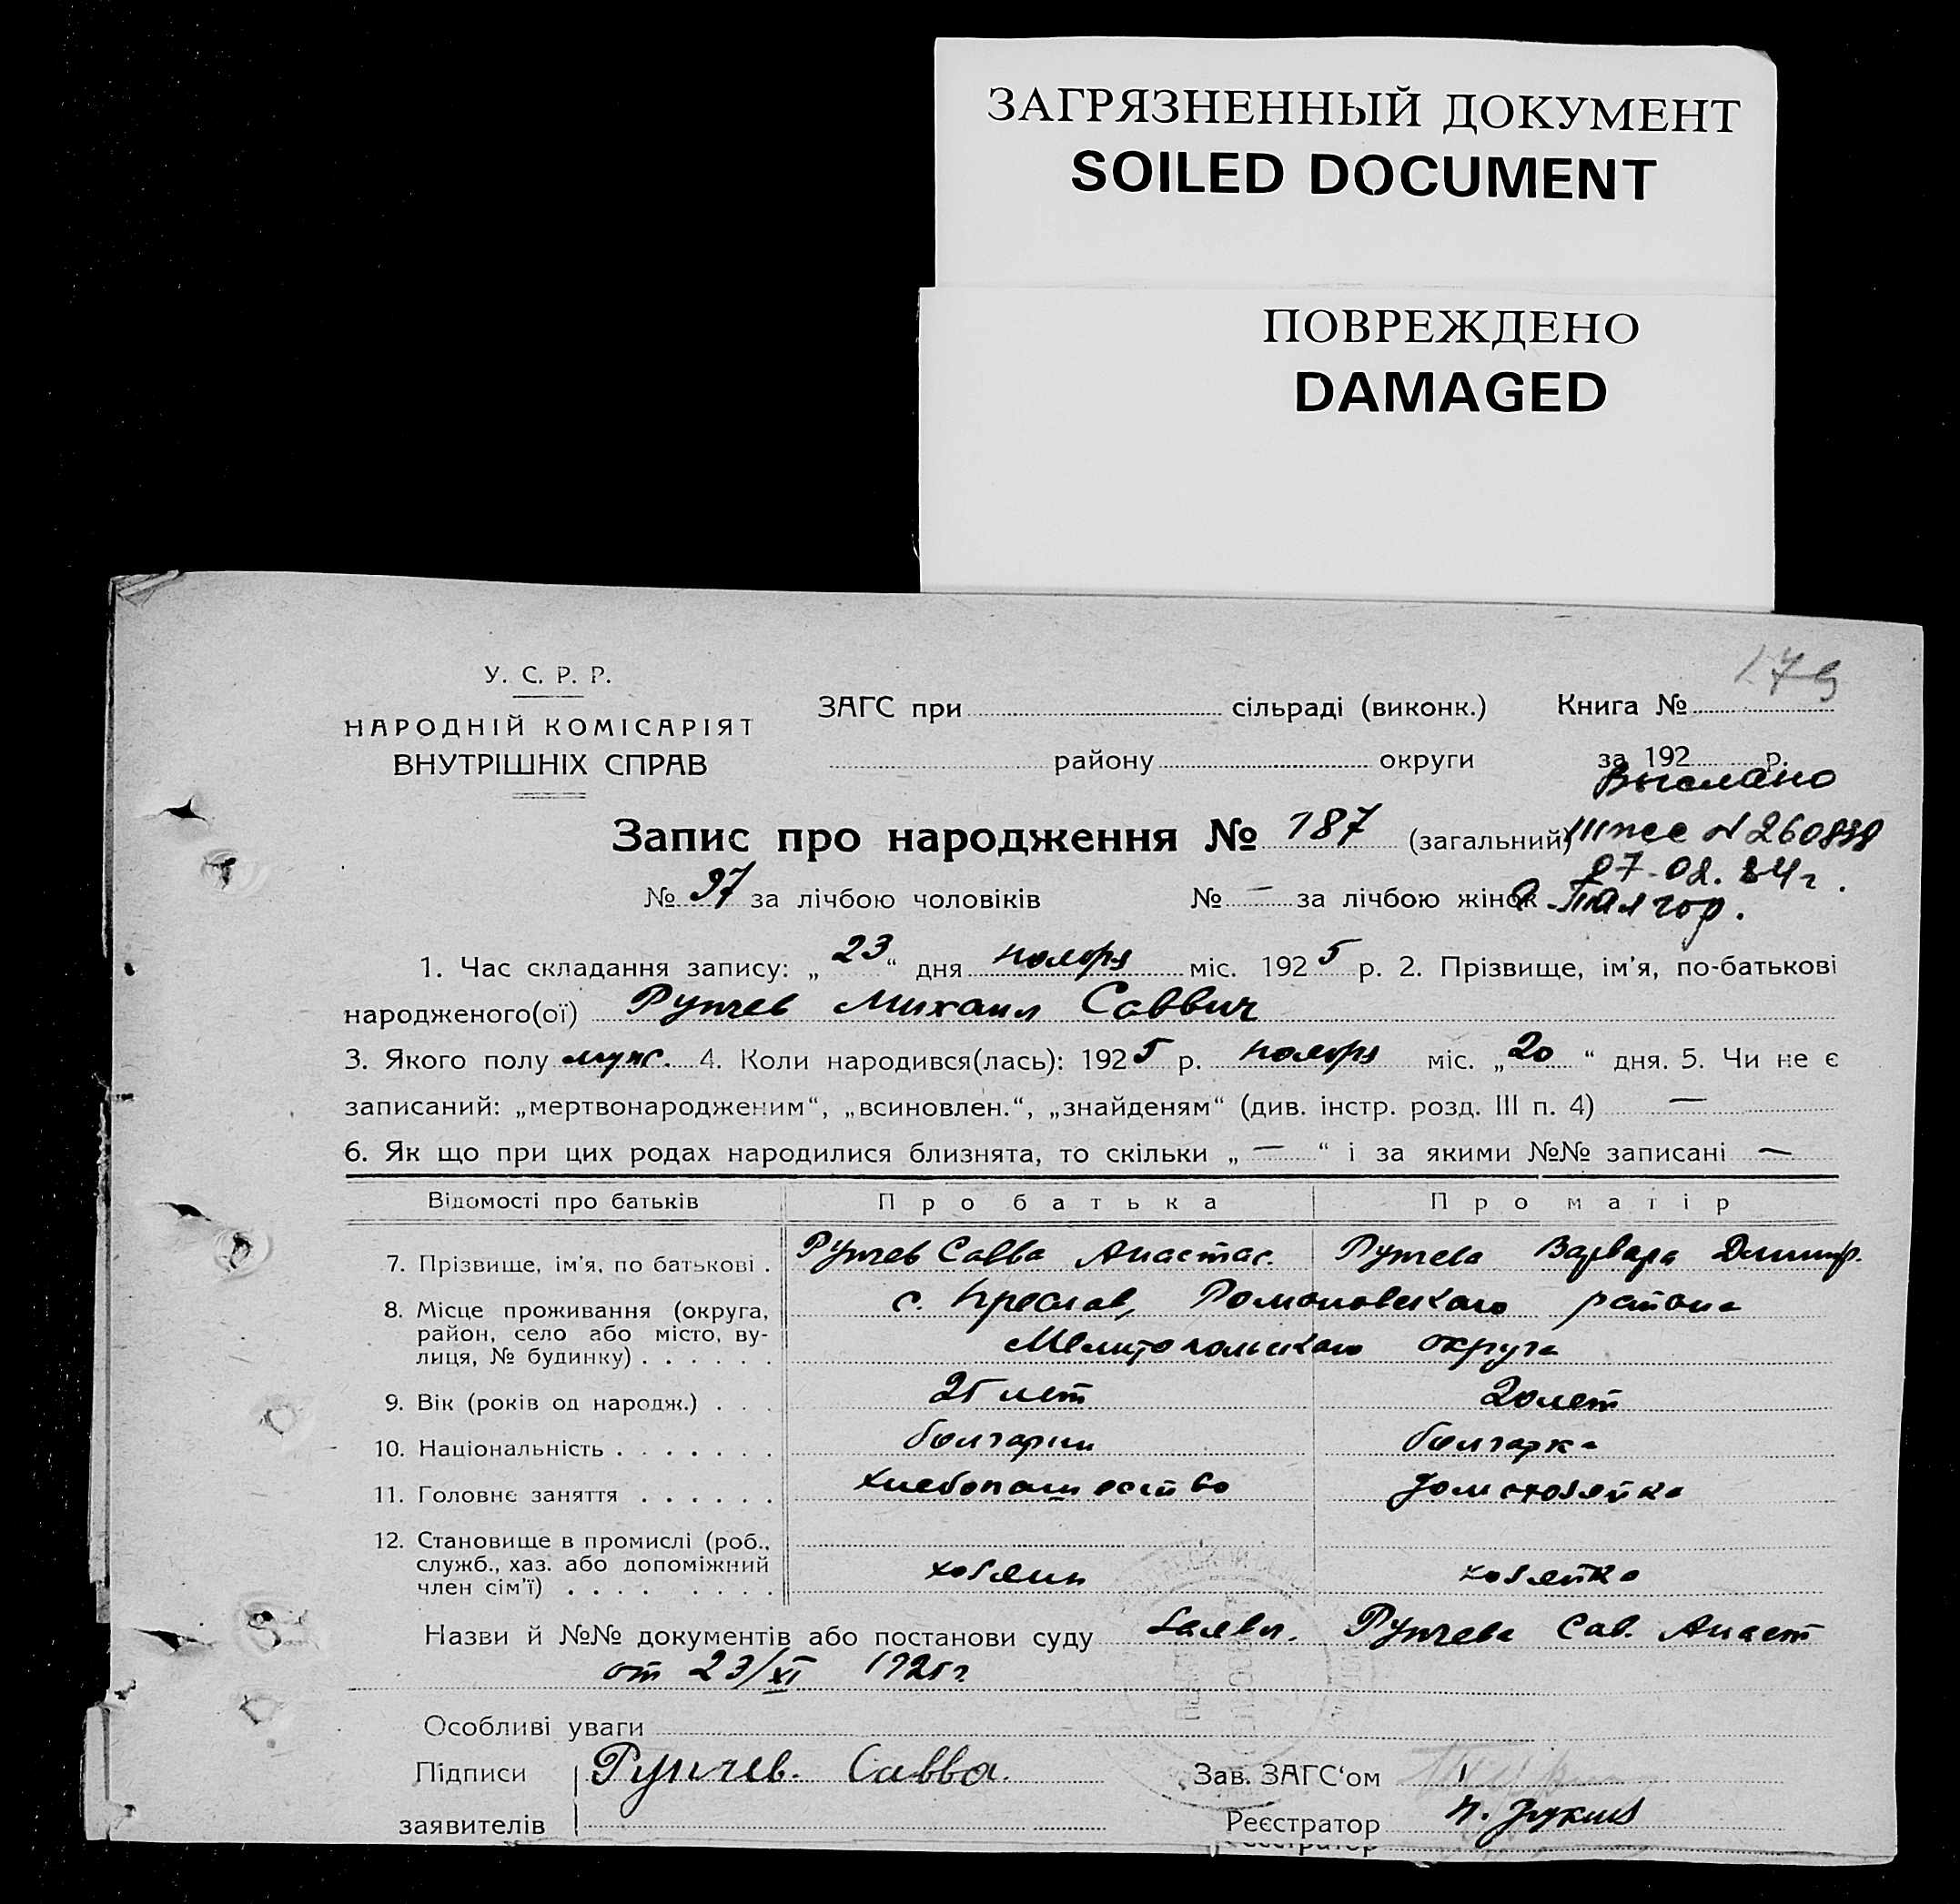 ЗАГРЯЗНЕННЫЙ ДОКУМЕНТ
SOILED DOCUMENT
ПОВРЕЖДЕНО
DAMAGED
179
У. С. Р. Р.
НАРОДНІЙ КОМІСАРІЯТ
ВНУТРІШНІХ СПРАВ
ЗАГС при сільраді (виконк.) Книга №
району округи за 192 р.
Выслано
Запис про народження № 187 (загальний)
№ 260838
07-02. 84 г.
№ 97 за лічбою чоловіків № — за лічбою жінок
1. Час складання запису: „23“ дня ноября міс. 1925 р. 2. Прізвище, ім'я, по-батькові
народженого(ої) Рупчев Михаил Саввич
3. Якого полу муж. 4. Коли народився(лась): 1925 р. ноября міс. „20“ дня. 5. Чи не є
записаний: „мертвонародженим“, „всиновлен.“, „знайденям“ (див. інстр. розд. III п. 4) —
6. Як що при цих родах народилися близнята, то скільки „—“ і за якими №№ записані —
Відомості про батьків Про батька Про матір
7. Прізвище, ім'я, по батькові . Рупчев Савва Анастас. Рупчева Варвара Димитр.
8. Місце проживання (округа, с. Преслав, Романовского района
район, село або місто, ву-
лиця, № будинку) . . . . . . Мелитопольского округа
9. Вік (років од народж.) . . . 25 лет 20 лет
10. Національність . . . . . . . болгарин болгарка
11. Головне заняття . . . . . . хлебопашество домохозяйка
12. Становище в промислі (роб.,
служб., хаз. або допоміжний
член сім'ї) . . . . . . . . хозяин хозяйка
Назви й №№ документів або постанови суду Заявл. Рупчева Сав. Анаст
от 23/XI 1925 г
Особливі уваги
Підписи Рупчев. Савва. Зав. ЗАГС'ом
заявителів Реєстратор